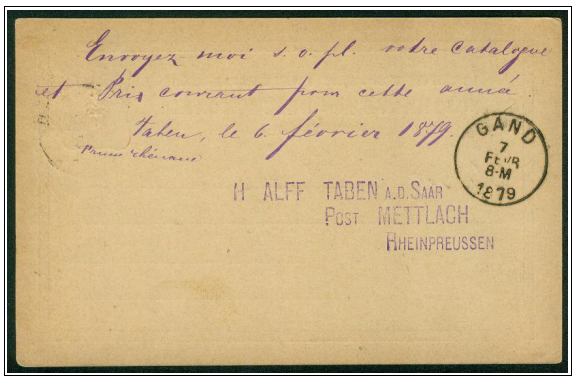 Envoyez moi s. o. pl. votre Catalogue
et Prix courant pour cette année.
Taben, le 6. février 1879.
H ALFF TABEN A.D. SAAR
POST METTLACH
RHEINPREUSSEN
GAND
7
FEVR
8-M
1879